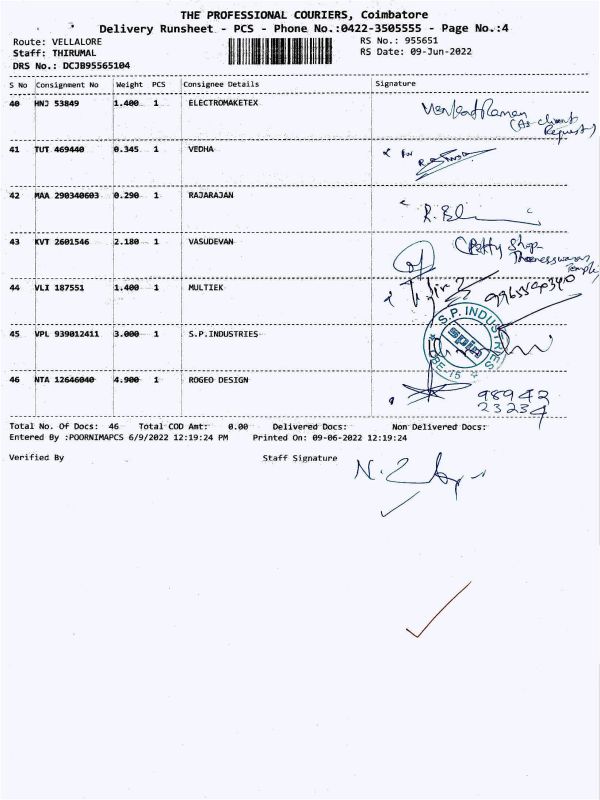 THE PROFESSIONAL COURIERS, Coimbatore
Delivery Runsheet - PCS - Phone No.:0422-3505555 - Page No.:4
Route: VELLALORE RS No.: 955651
Staff: THIRUMAL RS Date: 09-Jun-2022
DRS No.: DCJB95565104
S No Consignment No Weight PCS Consignee Details Signature
40 HNJ 53849 1.400 1 ELECTROMAKETEX
Venkatraman
(As client
Request)
41 TUT 469440 0.345 1 VEDHA
for
42 MAA 290340603 0.290 1 RAJARAJAN
43 KVT 2601546 2.180 1 VASUDEVAN
(Petty Shop
Temple)
44 VLI 187551 1.400 1 MULTIEK
45 VPL 939012411 3.000 1 S.P.INDUSTRIES
S.P. INDUSTRIES
spin
CBE-15
46 NTA 12646040 4.900 1 ROGEO DESIGN
98942
23234
Total No. Of Docs: 46 Total COD Amt: 0.00 Delivered Docs: Non Delivered Docs:
Entered By :POORNIMAPCS 6/9/2022 12:19:24 PM Printed On: 09-06-2022 12:19:24
Verified By Staff Signature